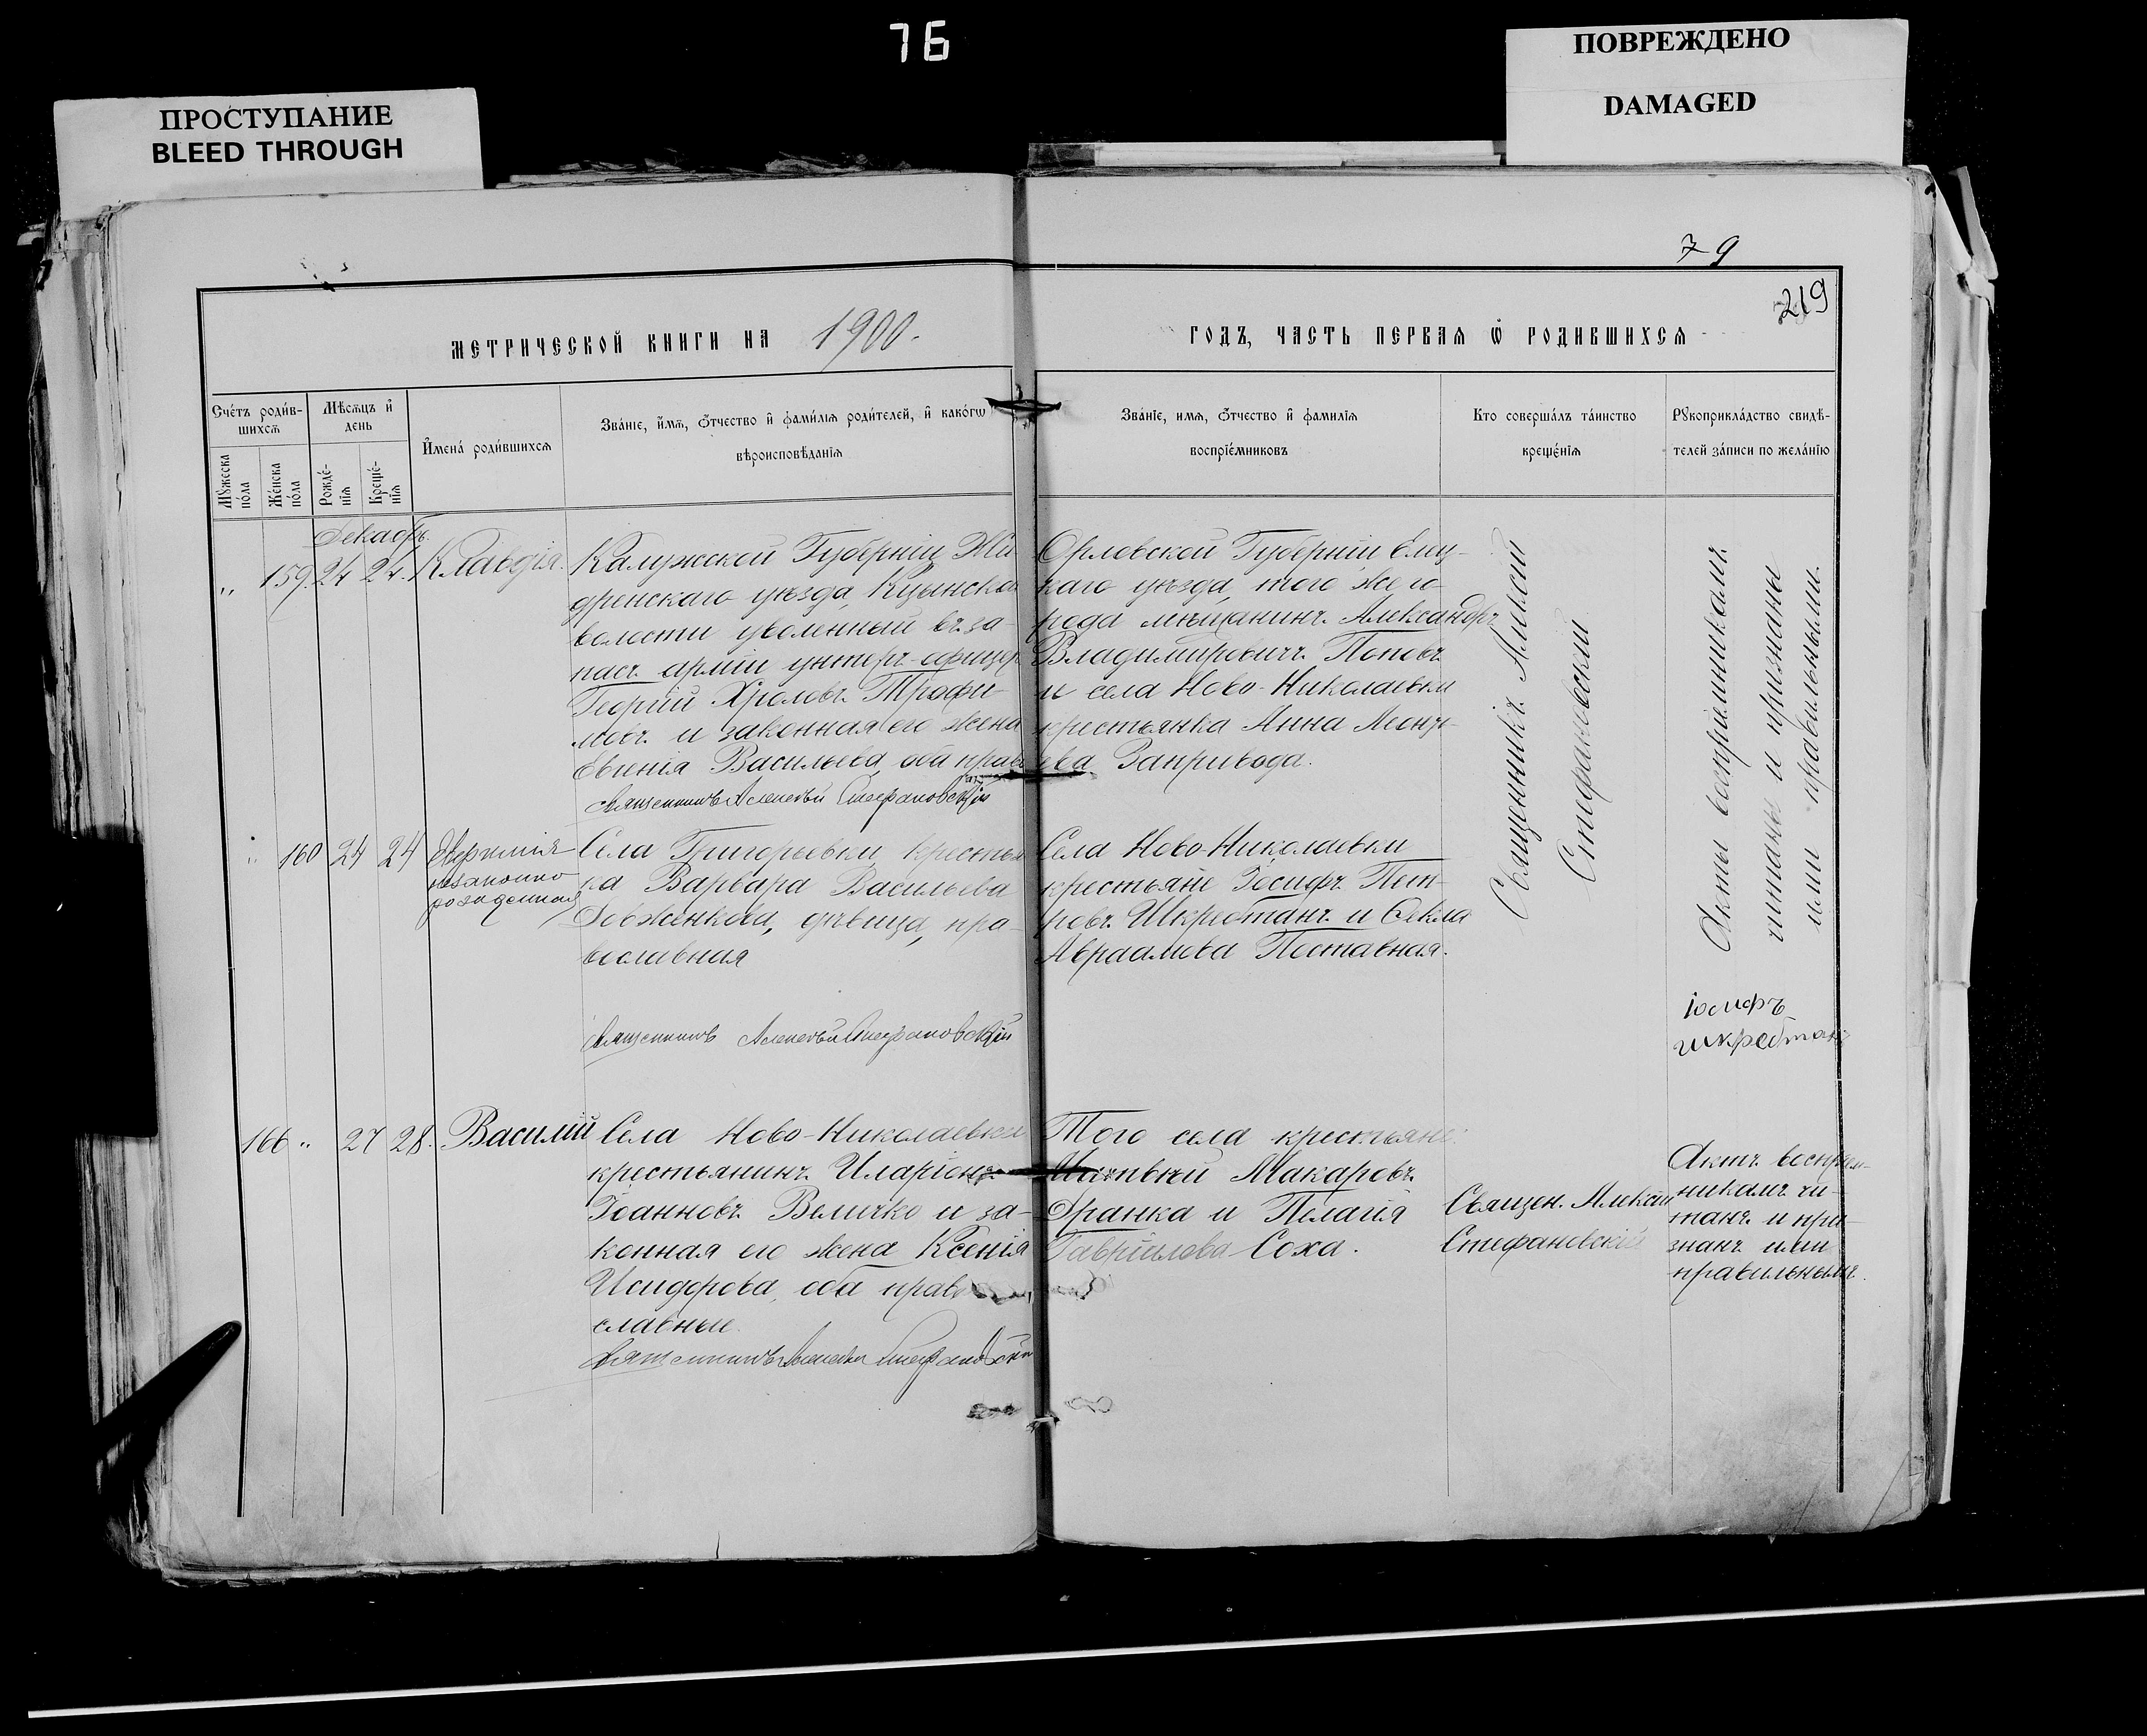 76
ПОВРЕЖДЕНО
DAMAGED
ПРОСТУПАНИЕ
BLEED THROUGH
79
219
МЕТРИЧЕСКОЙ КНИГИ НА 1900.
ГОДЪ, ЧАСТЬ ПЕРВАЯ Ѿ РОДИВШИХСЯ
Счетъ родив-
шихся
Мѣсяцъ и
день
Мужеска
пола
Женска
пола
Рожде-
нія
Креще-
нія
Имена родившихся
Званіе, имя, отчество и фамилія родителей, и какогω
вѣроисповѣданія
Званіе, имя, отчество и фамилія
воспріемниковъ
Кто совершалъ таинство
крещенія
Рукоприкладство свидѣ-
телей записи по желанію
Декабрь.
„ 159. 24 24. Клавдія.
Калужской Губерніи Жи
дренскаго уѣзда, Кцынской
волости уволенный въ за-
пасъ арміи унтеръ-офицеръ
Георгій Хроловъ Трофи-
мовъ и законная его жена
Евгенія Васильева, оба право
Священникъ Алексей Стефановскій
Орловской Губерніи, Елец-
каго уѣзда, того же го-
рода мѣщанинъ Александръ
Владимировичъ Поповъ
и села Ново-Николаевки
крестьянка Анна Леонть-
ева Запривода.
Священникъ Алексій
Стефановскій
Акты воспріемникамъ
читаны и признаны
ими правильными.
„ 160 24 24
незаконно
рожденная
Села Григорьевки, крестьян
ка Варвара Васильева
Довженкова, дѣвица, пра-
вославная
Священникъ Алексей Стефановскій
Села Ново-Николаевки
крестьяне Іосифъ Пет-
ровъ Шкребтанъ и Ѳекла
Авраамова Поставная.
іосифъ
шкребтанъ
166 „ 27 28. Василій
Села Ново-Николаевки
крестьянинъ Иларіонъ
Іоанновъ Величко и за-
конная его жена Ксенія
Исидорова, оба право
славные.
Священникъ Алексей Стефановскій
Того села крестьяне:
Матвѣй Макаровъ
Дранка и Пелагія
Гавріилова Соха.
Священ. Алексій
Стефановскій
Актъ воспріем-
никамъ чи-
танъ и при-
знанъ ими
правильнымъ.